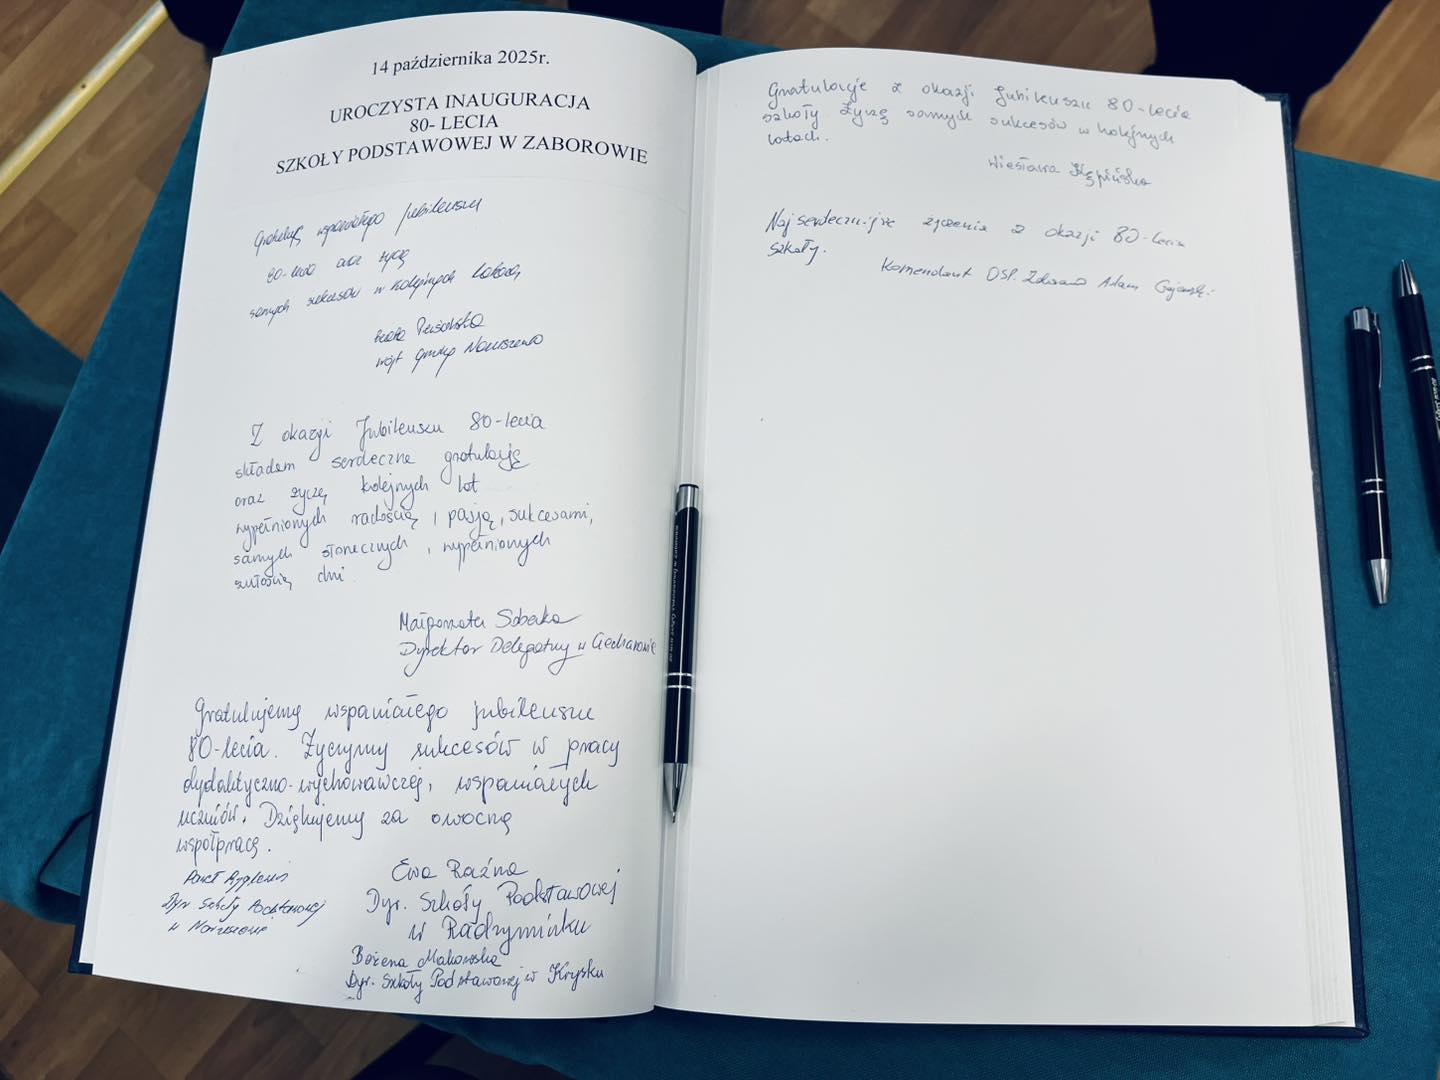 14 października 2025r.
UROCZYSTA INAUGURACJA
80- LECIA
SZKOŁY PODSTAWOWEJ W ZABOROWIE
Gratuluję wspaniałego Jubileuszu
80-lecia oraz życzę
samych sukcesów w kolejnych latach
Beata
wójt Gminy Naruszewo
Z okazji Jubileuszu 80-lecia
składam serdeczne gratulacje
oraz życzę kolejnych lat
wypełnionych radością i pasją, sukcesami,
samych słonecznych, wypełnionych
dni.
Małgorzata Sobecka
Dyrektor Delegatury w Ciechanowie
Gratulujemy wspaniałego jubileuszu
80-lecia. Życzymy sukcesów w pracy
dydaktyczno-wychowawczej, wspaniałych
uczniów. Dziękujemy za owocną
współpracę.
Paweł
Dyr Szkoły Podstawowej
w Naruszewie
Ewa Raźna
Dyr. Szkoły Podstawowej
w Radzyminku
Bożena Makowska
Dyr. Szkoły Podstawowej w Krysku
Gratulacje z okazji Jubileuszu 80-lecia
szkoły. Życzę samych sukcesów w kolejnych
latach.
Wiesława Kępińska
Najserdeczniejsze życzenia z okazji 80-lecia
szkoły.
Komendant OSP. Zdwano Adam